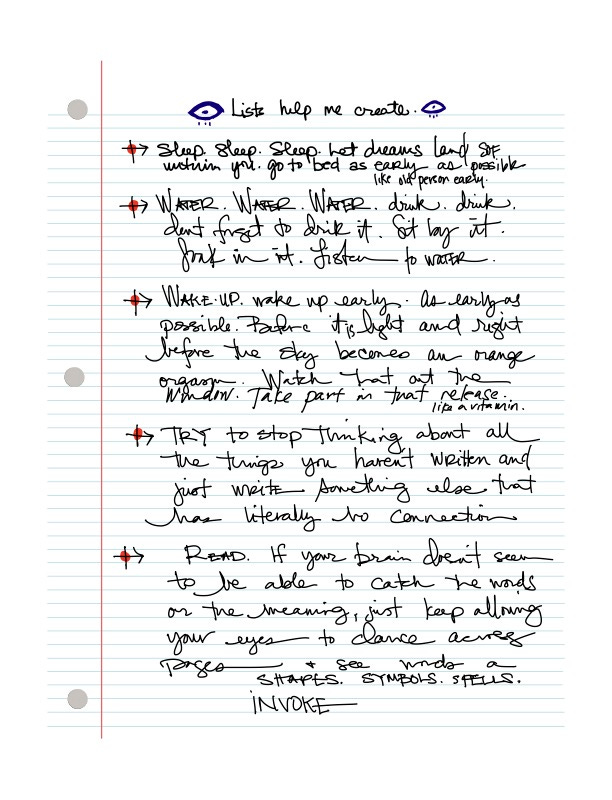 Lists help me create.
Sleep. Sleep. Sleep. Let dreams land
within you. go to bed as early as possible
like old person early.
WATER. WATER. WATER. drink. drink.
dont forget to drink it. Sit by it.
Soak in it. Listen to WATER.
WAKE UP. wake up early. As early as
possible. Before it is light and right
before the sky becomes an orange
orgasm. Watch that out the
window. Take part in that release.
like a vitamin.
TRY to stop Thinking about all
the things you haven't written and
just write something else that
has literally no connection
READ. If your brain doesn't seem
to be able to catch the words
or the meaning, just keep allowing
your eyes to dance across
pages + see words a
SHAPES. SYMBOLS. SPELLS.
INVOKE